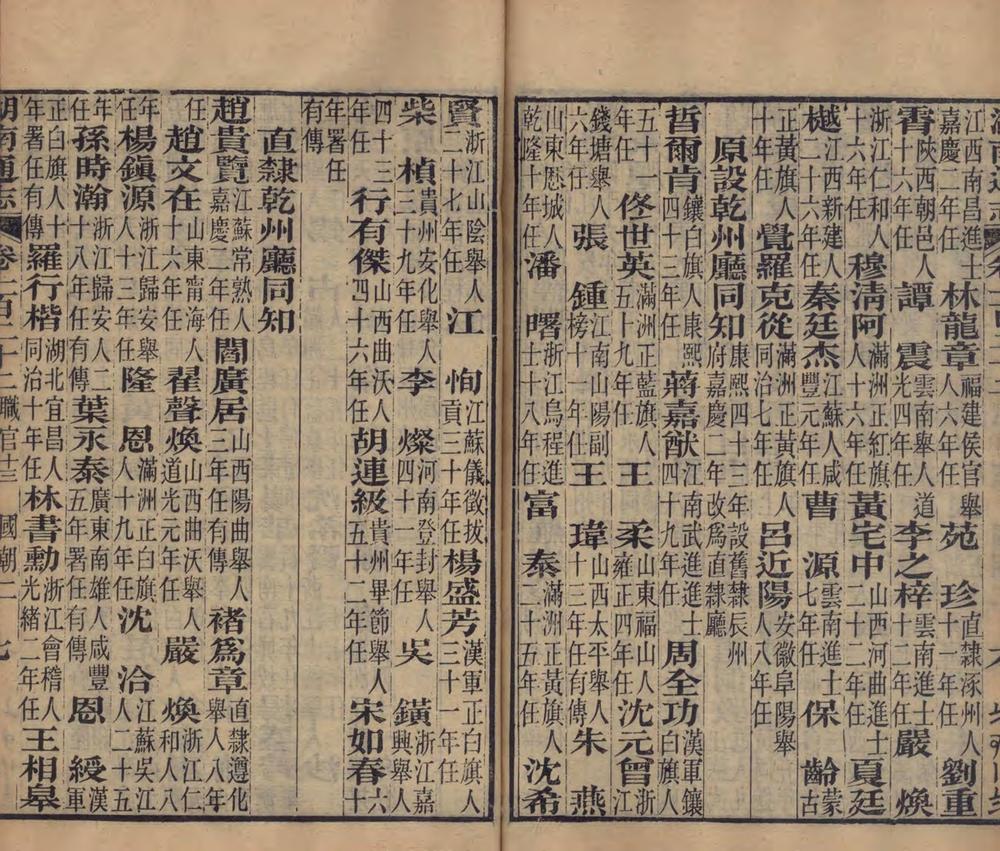 江西南昌進士嘉慶二年任林龍章福建侯官舉人六年任苑珍直隸涿州人十一年任劉重
霄陝西朝邑人十六年任譚震雲南舉人道光四年任李之梓雲南進士十二年任嚴煥
浙江仁和人十六年任穆淸阿滿洲正紅旗人十六年任黃宅中山西河曲進士二十二年任夏廷
樾江西新建人二十六年任秦廷杰江蘇人咸豐元年任曹源雲南進士七年任保齡蒙古
正黃旗人十年任覺羅克從滿洲正黃旗人同治七年任呂近陽安徽阜陽舉人八年任
原設乾州廳同知康熙四十三年設舊隸辰州府嘉慶二年改爲直隸廳
哲爾肯鑲白旗人康熙四十三年任蔣嘉猷江南武進進士四十九年任周全功漢軍鑲白旗人
五十一年任佟世英滿洲正藍旗人五十九年任王柔山東福山人雍正四年任沈元曾浙江
錢塘舉人六年任張鍾江南山陽副榜十一年任王瑋山西太平舉人十三年任有傳朱燕
山東恩城人乾隆十年任潘曙浙江烏程進士十八年任富泰滿洲正黃旗人二十五年任沈希
賢浙江山陰舉人二十七年任江恂江蘇儀徵拔貢三十年任楊盛芳漢軍正白旗人三十一年任
柴楨貴州安化舉人三十九年任李燦河南登封舉人四十一年任吳鐄浙江嘉興舉人
四十三年任行有傑山西曲沃人四十六年任胡連級貴州畢節舉人五十二年任宋如春六十
年署任有傳
直隸乾州廳同知
趙貴覽江蘇常熟人嘉慶二年任閻廣居山西陽曲舉人三年任有傳褚爲章直隸遵化舉人八年
任趙文在山東甯海人十六年任翟聲煥山西曲沃舉人道光元年任嚴煥浙江仁和人八
年任楊鎭源浙江歸安舉人十三年任隆恩滿洲正白旗人十九年任沈洽江蘇吳江人二十五
年任孫時瀚浙江歸安人十八年任有傳葉永泰廣東南雄人咸豐五年署任有傳恩綬漢軍
正白旗人十年署任有傳羅行楷湖北宜昌人同治十年任林書勳浙江會稽人光緒二年任王相皋
湖南通志 卷一百二十二 職官十三 國朝二 七